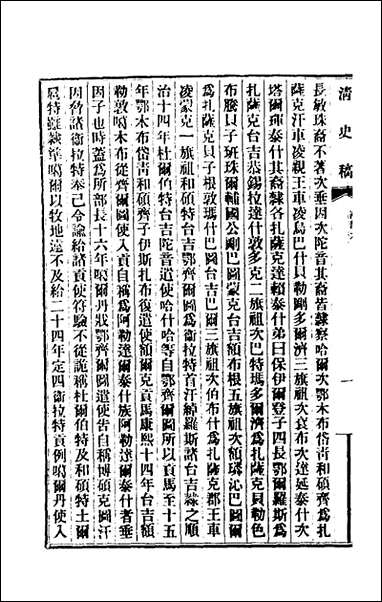 清史稿
長敏珠裔不著次垂因次陀普其裔皆隸察哈爾次鄂木布岱青和碩齊爲扎
薩克汗車凌親王車凌烏巴什貝勒剛多爾濟三旗祖次袞布次達延泰什次
塔爾琿泰什其裔隸各扎薩克達賴泰什弟曰保伊爾登子四長鄂爾羅斯爲
扎薩克台吉恭錫拉達什敦多克二旗祖次巴特瑪多爾濟爲扎薩克貝勒色
布騰貝子班珠爾輔國公剛巴圖蒙克台吉額布根五旗祖次額璘沁巴圖爾
爲扎薩克貝子根敦瑪什巴圖台吉巴爾三旗祖次伯布什爲扎薩克郡王車
凌蒙克一旗祖和碩特台吉鄂齊爾圖與衛拉特首汗綽羅斯諸台吉隸之順
治十四年杜爾伯特台吉陀普道使哈什哈等自鄂齊爾圖所以貢馬至十五
年鄂木布岱青和碩齊子伊斯扎布復遣使額爾克貢馬康熙十四年台吉額
勒敦噶木布從齊爾圖使入貢自稱爲阿勒達爾泰什族阿勒達爾泰什者垂
因子也時蓋爲所部長十六年噶爾丹戕鄂齊爾圖遣使告自稱博碩克圖汗
因脅諸衛拉特奉己令諭給諸貢使符驗不從詭稱杜爾伯特及和碩特土爾
扈特難隸準噶爾以牧地遠不及給二十四年定四衛拉特貢例噶爾丹使入
一